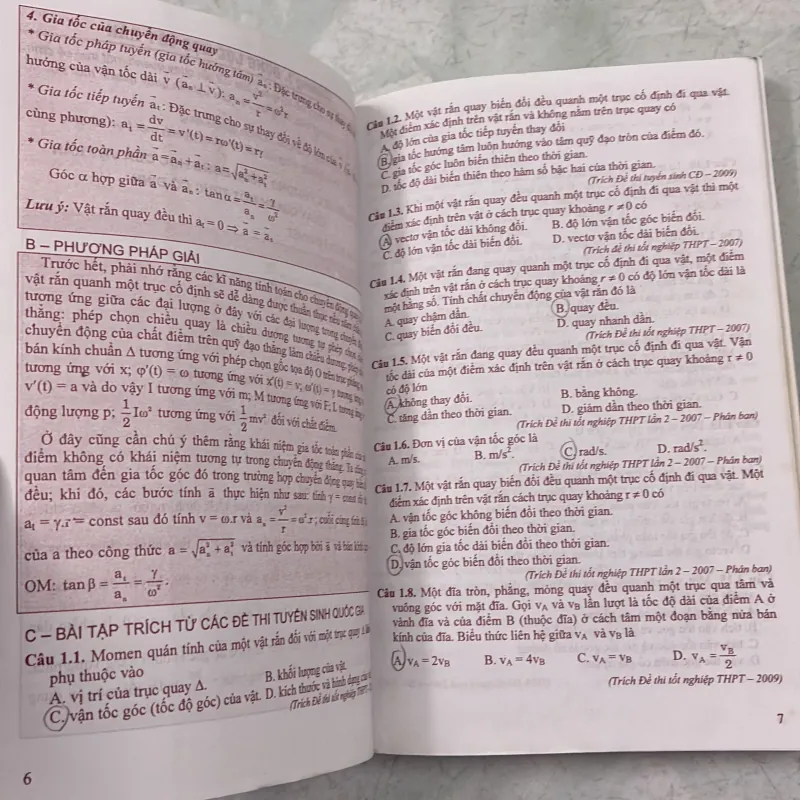 4. Gia tốc của chuyển động quay
* Gia tốc pháp tuyến (gia tốc hướng tâm) a⃗ₙ: Đặc trưng cho sự thay đổi
hướng của vận tốc dài v⃗ (a⃗ₙ ⊥ v⃗); aₙ = v²/r = ω²r
* Gia tốc tiếp tuyến a⃗ₜ: Đặc trưng cho sự thay đổi về độ lớn của v⃗
cùng phương): aₜ = dv/dt = v'(t) = rω'(t) = rγ
* Gia tốc toàn phần a⃗ = a⃗ₙ + a⃗ₜ; a = √(aₙ² + aₜ²)
Góc α hợp giữa a⃗ và a⃗ₙ: tanα = aₜ/aₙ = γ/ω²
Lưu ý: Vật rắn quay đều thì aₜ = 0 ⇒ a⃗ = a⃗ₙ
B – PHƯƠNG PHÁP GIẢI
Trước hết, phải nhớ rằng các kĩ năng tính toán cho chuyển động quay
vật rắn quanh một trục cố định sẽ dễ dàng được thuần thục nếu nắm
tương ứng giữa các đại lượng ở đây với các đại lượng trong chuyển
thẳng: phép chọn chiều quay là chiều dương tương tự phép chọn
chuyển động của chất điểm trên quỹ đạo thẳng làm chiều dương; phép
bán kính chuẩn Δ tương ứng với phép chọn gốc tọa độ O trên trục
tương ứng với x; φ'(t) = ω tương ứng với x'(t) = v; ω'(t) = γ tương ứng
v'(t) = a và do vậy I tương ứng với m; M tương ứng với F; L tương ứng
động lượng p; 1/2 Iω² tương ứng với 1/2 mv² đối với chất điểm.
Ở đây cũng cần chú ý thêm rằng khái niệm gia tốc toàn phần của
điểm không có khái niệm tương tự trong chuyển động thẳng. Ta
quan tâm đến gia tốc góc đó trong trường hợp chuyển động quay biến
đều; khi đó, các bước tính a⃗ thực hiện như sau: tính γ = const rồi
aₜ = γ.r = const sau đó tính v = ω.r và aₙ = v²/r = ω².r; cuối cùng tính
của a theo công thức a = √(aₙ² + aₜ²) và tính góc hợp bởi a⃗ và bán kính
OM: tanβ = aₜ/aₙ = γ/ω².
C – BÀI TẬP TRÍCH TỪ CÁC ĐỀ THI TUYỂN SINH QUỐC GIA
Câu 1.1. Momen quán tính của một vật rắn đối với một trục quay Δ
phụ thuộc vào
A. vị trí của trục quay Δ. B. khối lượng của vật.
C. vận tốc góc (tốc độ góc) của vật. D. kích thước và hình dạng của
(Trích Đề thi tốt nghiệp THPT
6
Câu 1.2. Một vật rắn quay biến đổi đều quanh một trục cố định đi qua vật.
Một điểm xác định trên vật rắn và không nằm trên trục quay có
A. độ lớn của gia tốc tiếp tuyến thay đổi
B. gia tốc hướng tâm luôn hướng vào tâm quỹ đạo tròn của điểm đó.
C. gia tốc góc luôn biến thiên theo thời gian.
D. tốc độ dài biến thiên theo hàm số bậc hai của thời gian.
(Trích Đề thi tuyển sinh CĐ – 2009)
Câu 1.3. Khi một vật rắn quay đều quanh một trục cố định đi qua vật thì một
điểm xác định trên vật ở cách trục quay khoảng r ≠ 0 có
A. vectơ vận tốc dài không đổi. B. độ lớn vận tốc góc biến đổi.
C. độ lớn vận tốc dài biến đổi. D. vectơ vận tốc dài biến đổi.
(Trích đề thi tốt nghiệp THPT – 2007)
Câu 1.4. Một vật rắn đang quay quanh một trục cố định đi qua vật, một điểm
xác định trên vật rắn ở cách trục quay khoảng r ≠ 0 có độ lớn vận tốc dài là
một hằng số. Tính chất chuyển động của vật rắn đó là
A. quay chậm dần. B. quay đều.
C. quay biến đổi đều. D. quay nhanh dần.
(Trích Đề thi tốt nghiệp THPT – 2007)
Câu 1.5. Một vật rắn đang quay đều quanh một trục cố định đi qua vật. Vận
tốc dài của một điểm xác định trên vật rắn ở cách trục quay khoảng r ≠ 0
có độ lớn
A. không thay đổi. B. bằng không.
C. tăng dần theo thời gian. D. giảm dần theo thời gian.
(Trích Đề thi tốt nghiệp THPT lần 2 – 2007 – Phân ban)
Câu 1.6. Đơn vị của vận tốc góc là
A. m/s. B. m/s². C. rad/s. D. rad/s².
(Trích Đề thi tốt nghiệp THPT lần 2 – 2007 – Phân ban)
Câu 1.7. Một vật rắn quay biến đổi đều quanh một trục cố định đi qua vật. Một
điểm xác định trên vật rắn cách trục quay khoảng r ≠ 0 có
A. vận tốc góc không biến đổi theo thời gian.
B. gia tốc góc biến đổi theo thời gian.
C. độ lớn gia tốc dài biến đổi theo thời gian.
D. vận tốc góc biến đổi theo thời gian.
(Trích Đề thi tốt nghiệp THPT lần 2 – 2007 – Phân ban)
Câu 1.8. Một đĩa tròn, phẳng, mỏng quay đều quanh một trục qua tâm và
vuông góc với mặt đĩa. Gọi vA và vB lần lượt là tốc độ dài của điểm A ở
vành đĩa và của điểm B (thuộc đĩa) ở cách tâm một đoạn bằng nửa bán
kính của đĩa. Biểu thức liên hệ giữa vA và vB là
A. vA = 2vB B. vA = 4vB C. vA = vB D. vA = vB/2
(Trích Đề thi tốt nghiệp THPT – 2009)
7